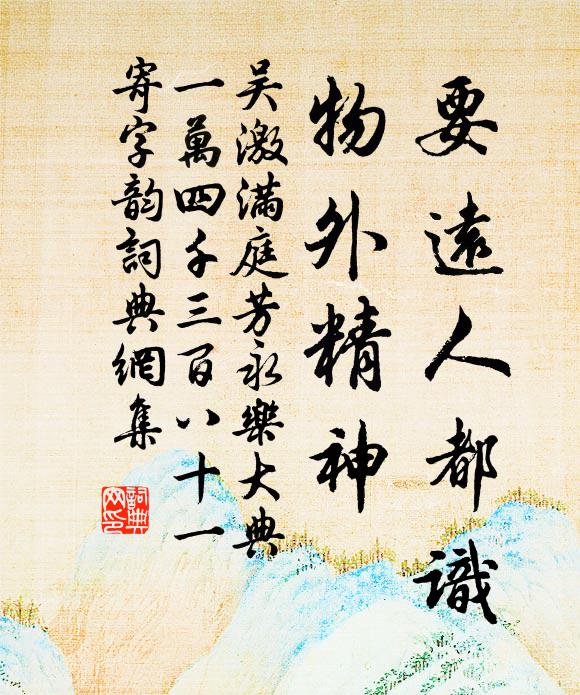 要遠人都識
物外精神
吴激滿庭芳永樂大典
一萬四千三百八十一
寄字韵詞典網集
詞典
网印